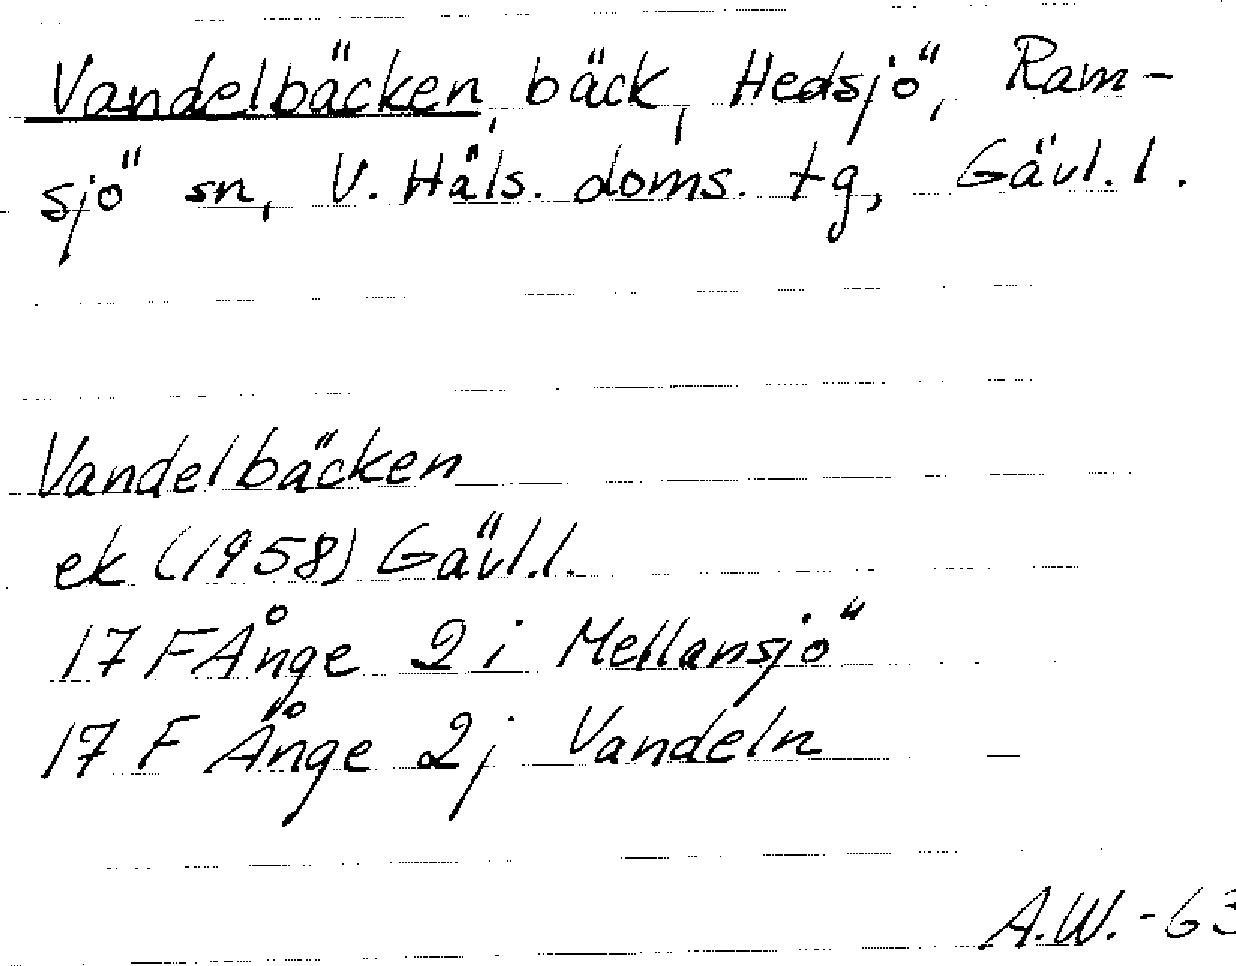 Vandelbäcken, bäck, Hedsjö, Ram-
sjö sn, V. Häls. doms. tg, Gävl. l.
Vandelbäcken
ek (1958) Gävl.l.
17 F Ånge 2 i Mellansjö
17 F Ånge 2j Vandeln
A.W.-63